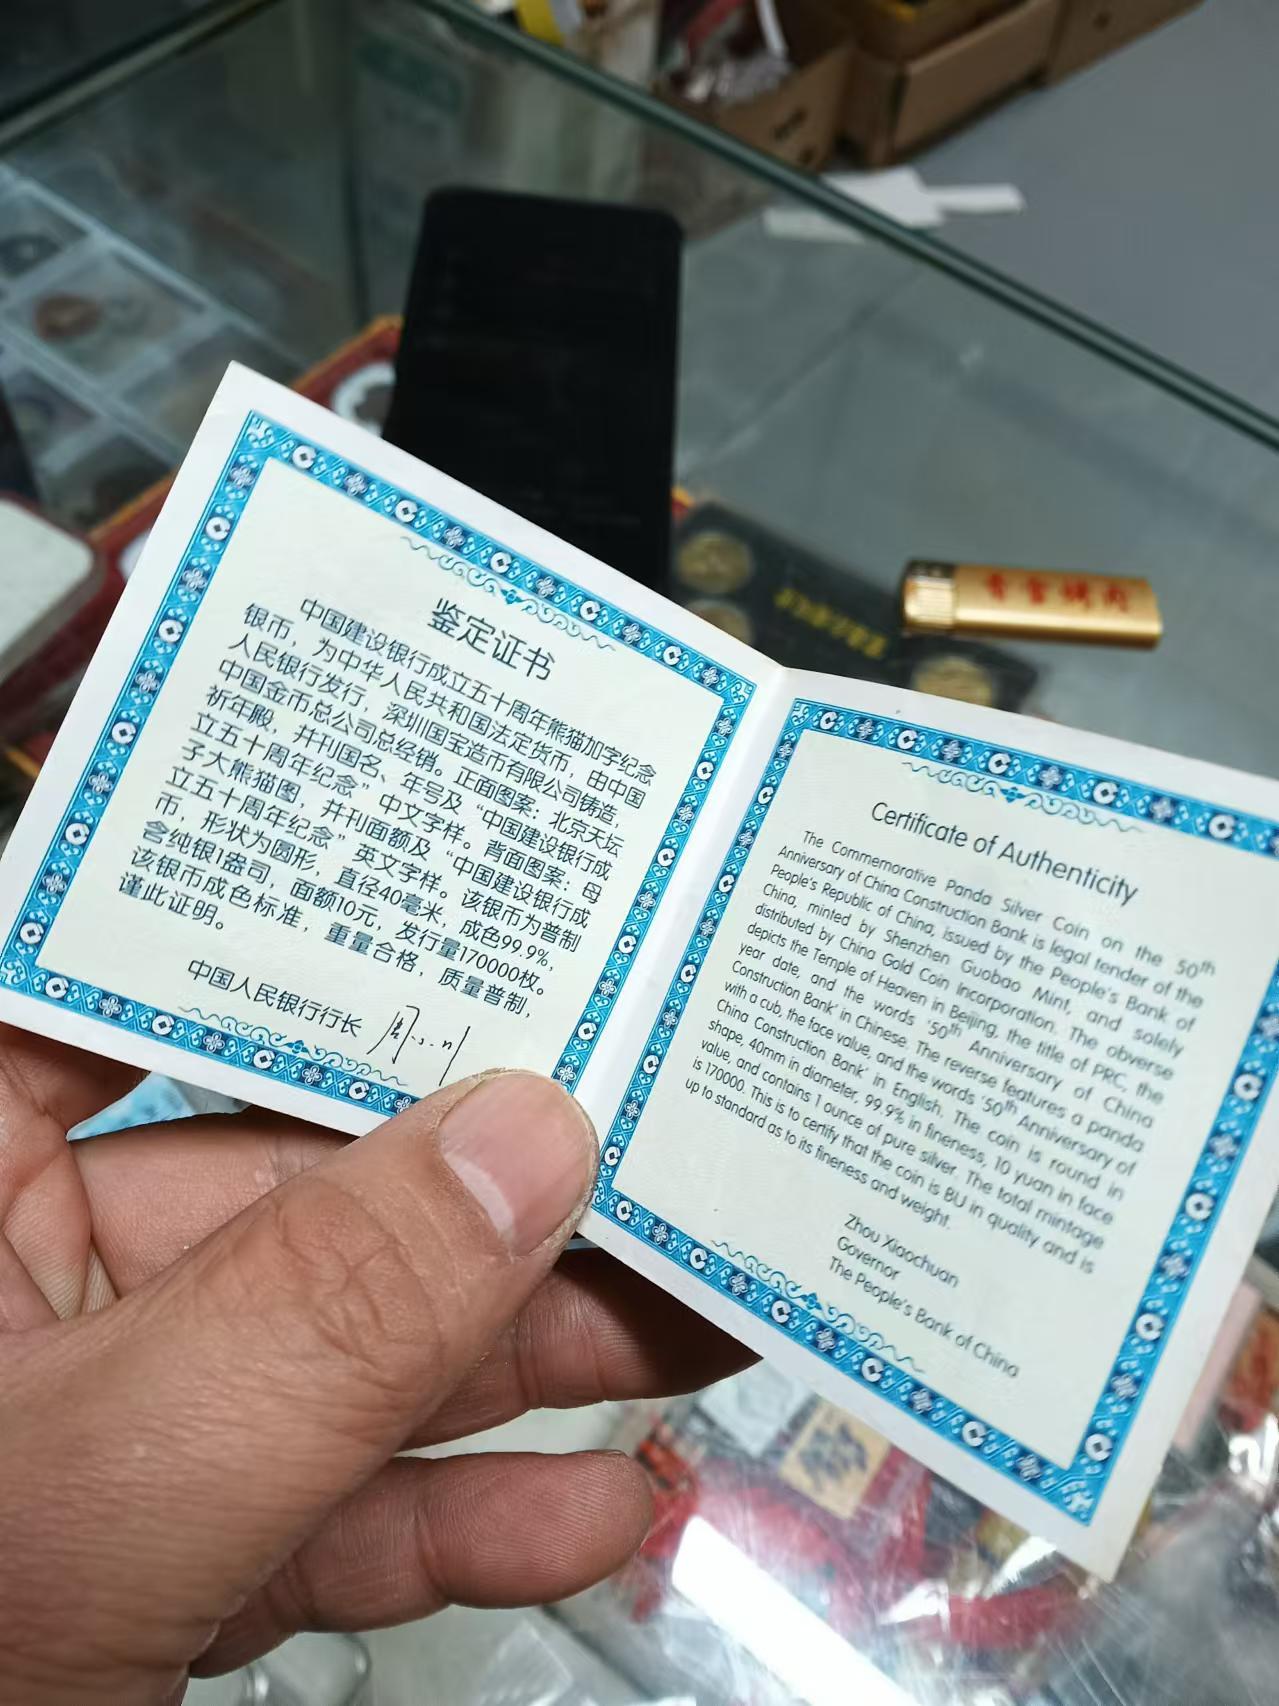 鉴定证书
中国建设银行成立五十周年熊猫加字纪念
银币，为中华人民共和国法定货币，由中国
人民银行发行，深圳国宝造币有限公司铸造，
中国金币总公司总经销。正面图案：北京天坛
祈年殿，并刊国名、年号及“中国建设银行成
立五十周年纪念”中文字样。背面图案：母
子大熊猫图，并刊面额及“中国建设银行成
立五十周年纪念”英文字样。该银币为普制
币，形状为圆形，直径40毫米，成色99.9%，
含纯银1盎司，面额10元，发行量170000枚。
该银币成色标准，重量合格，质量普制，
谨此证明。
中国人民银行行长
Certificate of Authenticity
The Commemorative Panda Silver Coin on the 50th
Anniversary of China Construction Bank is legal tender of the
People's Republic of China, issued by the People's Bank of
China, minted by Shenzhen Guobao Mint, and solely
distributed by China Gold Coin Incorporation. The obverse
depicts the Temple of Heaven in Beijing, the title of PRC, the
year date, and the words '50th Anniversary of China
Construction Bank' in Chinese. The reverse features a panda
with a cub, the face value, and the words '50th Anniversary of
China Construction Bank' in English. The coin is round in
shape, 40mm in diameter, 99.9% in fineness, 10 yuan in face
value, and contains 1 ounce of pure silver. The total mintage
is 170000. This is to certify that the coin is BU in quality and is
up to standard as to its fineness and weight.
Zhou Xiaochuan
Governor
The People's Bank of China